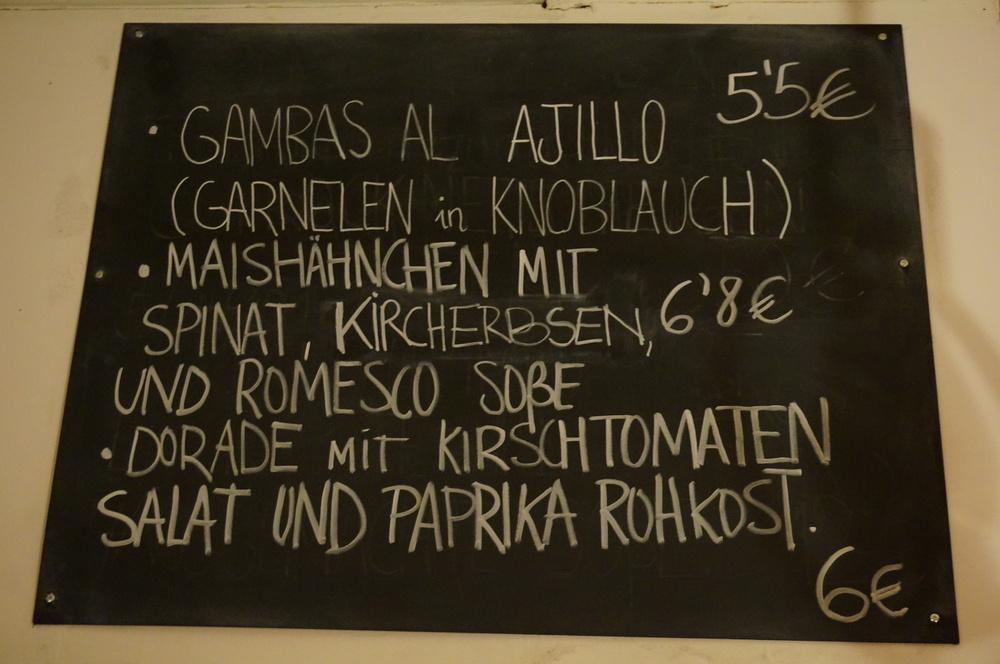 5'5€
· GAMBAS AL AJILLO
(GARNELEN in KNOBLAUCH)
· MAISHÄHNCHEN MIT
SPINAT, KIRCHERBSEN, 6'8€
UND ROMESCO SOßE
· DORADE MIT KIRSCHTOMATEN
SALAT UND PAPRIKA ROHKOST.
6€